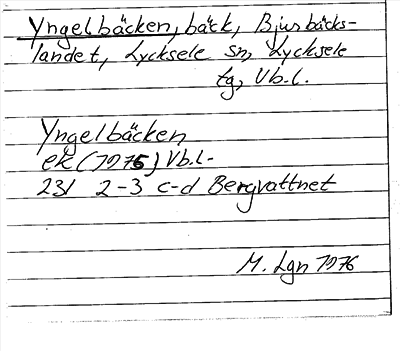 Yngelbäcken, bäck, Bjursbäcks-
landet, Lycksele sn, Lycksele
tg, Vb.l.
Yngelbäcken
ek (1975) Vb.l.
23I 2-3 c-d Bergvattnet
M. Lgn 1976